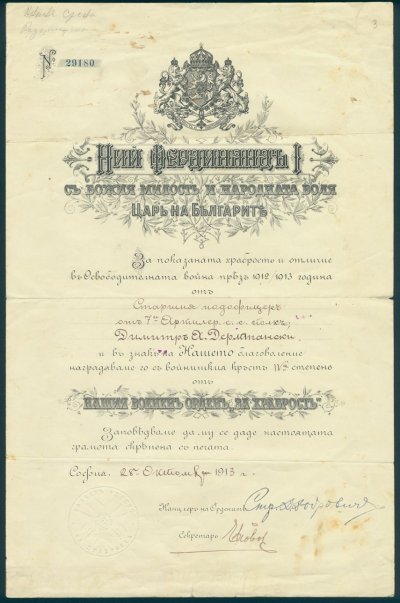 № 29180
3
Ний Фердинандъ I
Съ Божия милость и народната воля
Царь на Българитѣ
За показаната храбрость и отличие
въ Освободителната война прѣзъ 1912/1913 година
отъ
Старшия подофицеръ
отъ 7й Артилер. с. с. полкъ,
Димитръ А.
и въ знакъ на Нашето благоволение
награждаваме го съ войнишкия кръстъ IVа степень
отъ
Нашия Воененъ Орденъ „За Храбрость“
Заповѣдваме да му се даде настоящата
грамота скрѣпена съ печата.
София, 28й Октомври 1913 г.
Канцлеръ на Орденитѣ
Секретарь